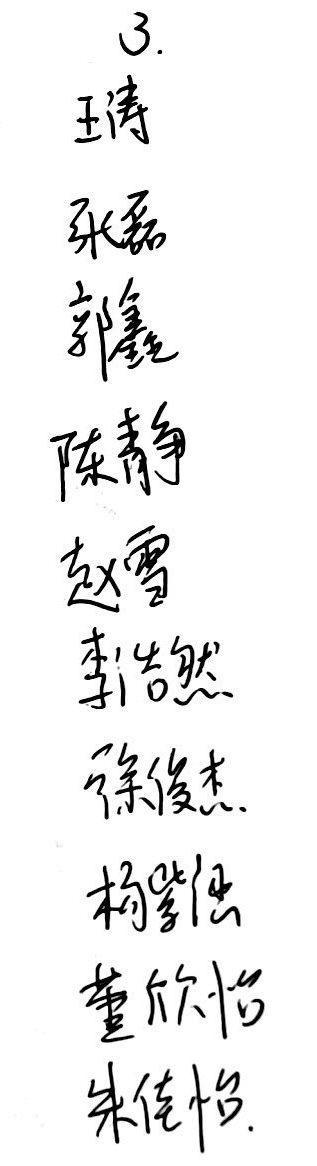 3.
王涛
张磊
郭鑫
陈静
赵雪
李浩然
徐俊杰.
杨紫涵
董欣怡
朱佳怡.